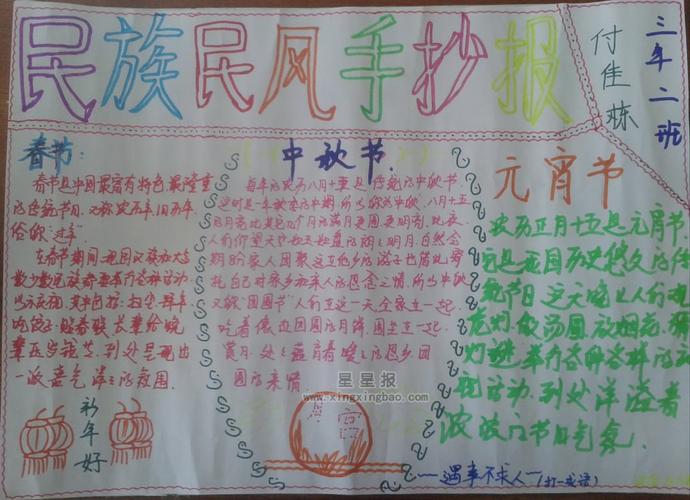 民族民风手抄报
三年二班
付佳栋
春节:
春节是中国最富有特色最隆重
的传统节日,又称农历年、旧历年,
俗称"过年"
在春节期间,我国汉族和大
多数少数民族都要举行各种活动
以示庆祝,其中包括:扫尘、拜年
吃饺子、贴春联、长辈给晚
辈压岁钱等,到处呈现出
一派喜气洋洋的氛围。
新年好
中秋节
每年的农历八月十五是传统的中秋节,
这时是一年秋季的中期,所以称为中秋,八月十五
的月亮比其它几个月的满月更圆,更明亮,此夜,
人们仰望天空如玉如盘的朗朗明月,自然会
期盼家人团聚,远在他乡的游子也借此寄
托自己对家乡和亲人的思念之情,所以中秋
又称"团圆节"人们在这一天,全家在一起,
吃着像血团圆的月饼,围坐在一起
赏月,处处蕴育着暖暖的思乡、团
圆的亲情
月宫
元宵节
农历正月十五是元宵节,
它是我国历史悠久的传
统节日,这天晚上人们观
花灯、做汤圆、放烟花、猜
灯谜,举行各种各样的庆
祝活动,到处洋溢着
浓浓的节日气氛.
遇事不求人(打一成语)
星星报
www.xingxingbao.com